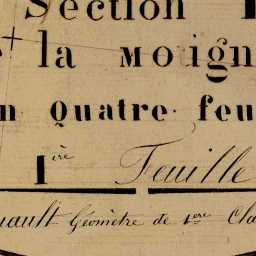 Section
la Moign
n quatre feu
1ère Feuille
nault Géomètre de 1ere Cla